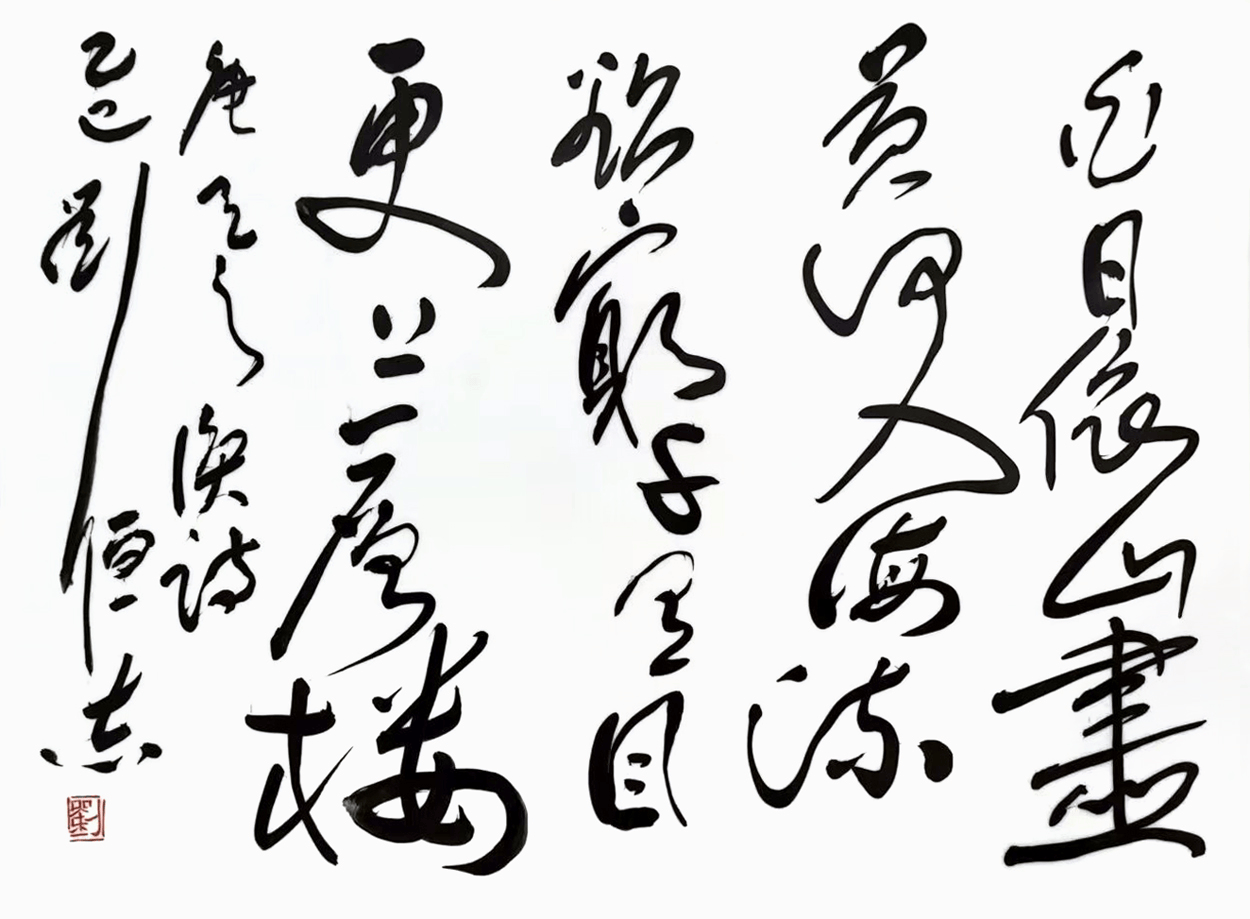 白日依山盡
黃河入海流
欲窮千里目
更上一層樓
唐王之渙詩
乙巳劉恒志
劉